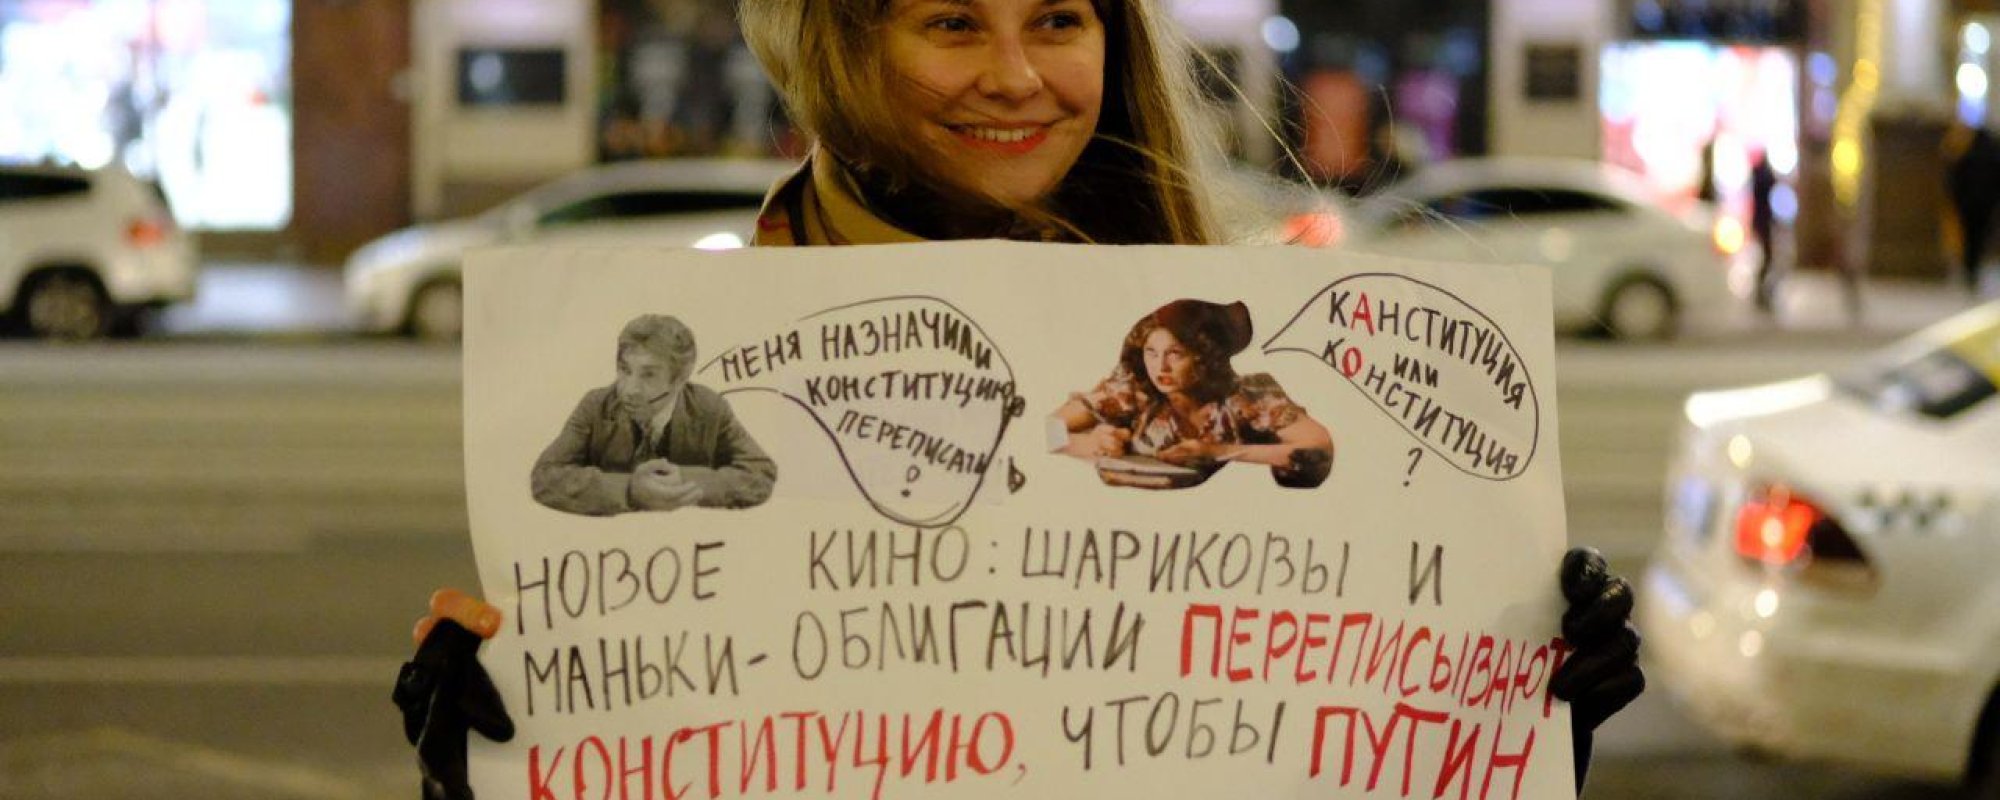 МЕНЯ НАЗНАЧИЛИ
КОНСТИТУЦИЮ
ПЕРЕПИСАТЬ
?
КАНСТИТУЦИЯ
ИЛИ
КОНСТИТУЦИЯ
?
НОВОЕ КИНО: ШАРИКОВЫ И
МАНЬКИ-ОБЛИГАЦИИ ПЕРЕПИСЫВАЮТ
КОНСТИТУЦИЮ, ЧТОБЫ ПУТИН